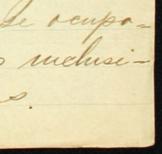 se ocupa-
s inclusi-
s.